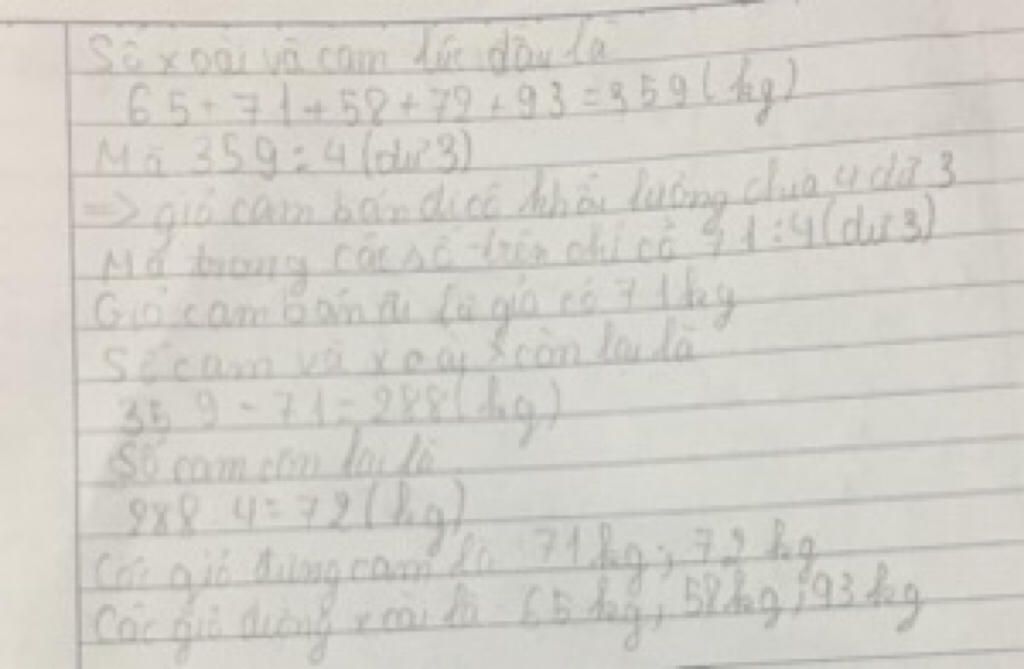 Số xoài và cam lúc đầu là
65+71+58+72+93=359(kg)
Mà 359:4(dư3)
=> giỏ cam bán đi có khối lượng chia 4 dư 3
Mà trong các số trên chỉ có 71:4(dư3)
Giỏ cam bán đi là giỏ có 71kg
Số cam và xoài còn lại là
359-71=288(kg)
Số cam còn lại là
288:4=72(kg)
Các giỏ đựng cam là 71kg; 72kg
Các giỏ đựng xoài là 65kg; 58kg; 93kg